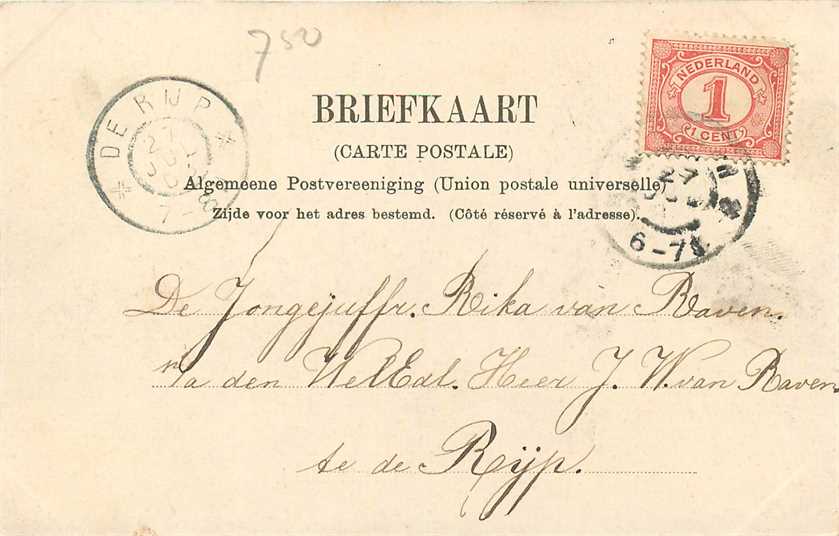 7 50
NEDERLAND
1
1 CENT
DE RIJP
27
7-8
BRIEFKAART
(CARTE POSTALE)
Algemeene Postvereeniging (Union postale universelle)
Zijde voor het adres bestemd. (Côté réservé à l'adresse).
27
6-7
De Jongejuffr. Rika van Raven.
p/a den WelEdl. Heer J. W. van Raven
te de Rijp.